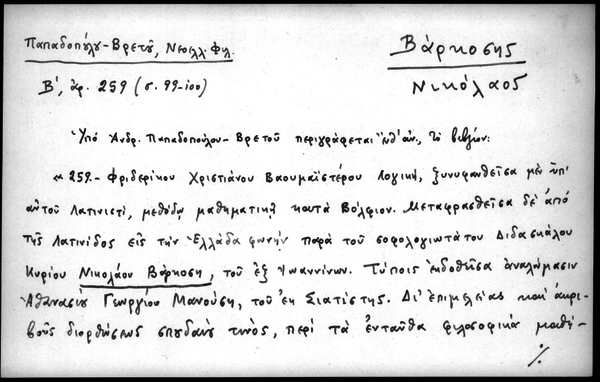 Παπαδοπούλου-Βρετοῦ, Νεοελλ. Φιλ.
Βάρκοσης
Νικόλαος
Β', ἀρ. 259 (σ. 99-100)
Ὑπό Ἀνδρ. Παπαδοπούλου-Βρετοῦ περιγράφεται ἐνθ' ἀν., τό βιβλίον:
« 259.- Φριδερίκου Χριστιάνου Βαουμαϊστέρου Λογική, ξυνυφανθεῖσα μέν ὑπ'
αὐτοῦ Λατινιστί, μεθόδῳ μαθηματικῇ κατά Βόλφιον. Μεταφρασθεῖσα δέ ἀπό
τῆς Λατινίδος εἰς τήν Ἑλλάδα φωνήν παρά τοῦ σοφολογιωτάτου Διδασκάλου
Κυρίου Νικολάου Βάρκοση, τοῦ ἐξ Ἰωαννίνων. Τύποις ἐκδοθεῖσα ἀναλώμασιν
Ἀθανασίου Γεωργίου Μανούση, τοῦ ἐκ Σιατίστης. Δι' ἐπιμελείας καί ἀκρι-
βοῦς διορθώσεως σπουδαίου τινός, περί τά ἐνταῦθα φιλοσοφικά μαθή-
./.